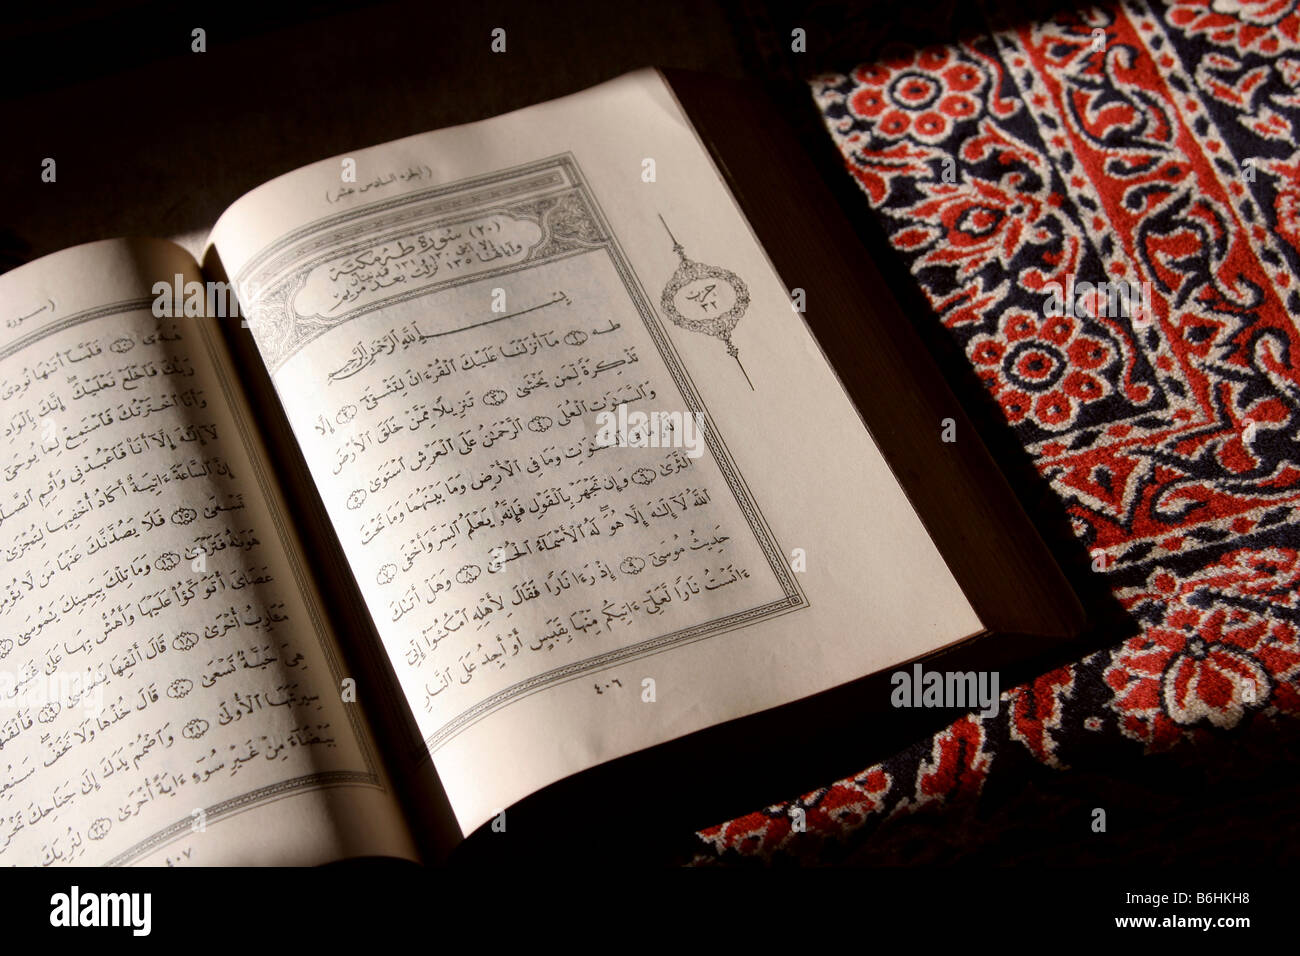 (الجزء السادس عشر)
(٢٠) سورة طه مكية
إلا آيتي ١٣٠، ١٣١ فمدنيتان
وآياتها ١٣٥ نزلت بعد مريم
حزب
٣٢
بِسْمِ
ٱللَّهِ ٱلرَّحْمَٰنِ ٱلرَّحِيمِ
طه ١ مَآ أَنزَلْنَا عَلَيْكَ ٱلْقُرْءَانَ لِتَشْقَىٰٓ ٢ إِلَّا
تَذْكِرَةً لِّمَن يَخْشَىٰ ٣ تَنزِيلًا مِّمَّنْ خَلَقَ ٱلْأَرْضَ
وَٱلسَّمَٰوَٰتِ ٱلْعُلَى ٤ ٱلرَّحْمَٰنُ عَلَى ٱلْعَرْشِ ٱسْتَوَىٰ ٥
لَهُۥ مَا فِى ٱلسَّمَٰوَٰتِ وَمَا فِى ٱلْأَرْضِ وَمَا بَيْنَهُمَا وَمَا تَحْتَ
ٱلثَّرَىٰ ٦ وَإِن تَجْهَرْ بِٱلْقَوْلِ فَإِنَّهُۥ يَعْلَمُ ٱلسِّرَّ وَأَخْفَى ٧
ٱللَّهُ لَآ إِلَٰهَ إِلَّا هُوَ لَهُ ٱلْأَسْمَآءُ ٱلْحُسْنَىٰ ٨ وَهَلْ أَتَىٰكَ
حَدِيثُ مُوسَىٰٓ ٩ إِذْ رَءَا نَارًا فَقَالَ لِأَهْلِهِ ٱمْكُثُوٓا۟ إِنِّىٓ
ءَانَسْتُ نَارًا لَّعَلِّىٓ ءَاتِيكُم مِّنْهَا بِقَبَسٍ أَوْ أَجِدُ عَلَى ٱلنَّارِ
٤٠٦
(سورة
هُدًى ١٠ فَلَمَّآ أَتَىٰهَا نُودِىَ
رَبُّكَ فَٱخْلَعْ نَعْلَيْكَ إِنَّكَ بِٱلْوَادِ
وَأَنَا ٱخْتَرْتُكَ فَٱسْتَمِعْ لِمَا يُوحَىٰٓ
لَآ إِلَٰهَ إِلَّآ أَنَا۠ فَٱعْبُدْنِى وَأَقِمِ
إِنَّ ٱلسَّاعَةَ ءَاتِيَةٌ أَكَادُ أُخْفِيهَا لِتُجْزَىٰ
تَسْعَىٰ ١٥ فَلَا يَصُدَّنَّكَ عَنْهَا مَن لَّا
هَوَىٰهُ فَتَرْدَىٰ ١٦ وَمَا تِلْكَ بِيَمِينِكَ يَٰمُوسَىٰ
عَصَاىَ أَتَوَكَّؤُا۟ عَلَيْهَا وَأَهُشُّ بِهَا عَلَىٰ غَنَمِى
مَـَٔارِبُ أُخْرَىٰ ١٨ قَالَ أَلْقِهَا يَٰمُوسَىٰ ١٩
هِىَ حَيَّةٌ تَسْعَىٰ ٢٠ قَالَ خُذْهَا وَلَا تَخَفْ
سِيرَتَهَا ٱلْأُولَىٰ ٢١ وَٱضْمُمْ يَدَكَ إِلَىٰ جَنَاحِكَ
بَيْضَآءَ مِنْ غَيْرِ سُوٓءٍ ءَايَةً أُخْرَىٰ ٢٢ لِنُرِيَكَ
٤٠٧
alamy
Image ID: B6HKH8
www.alamy.com